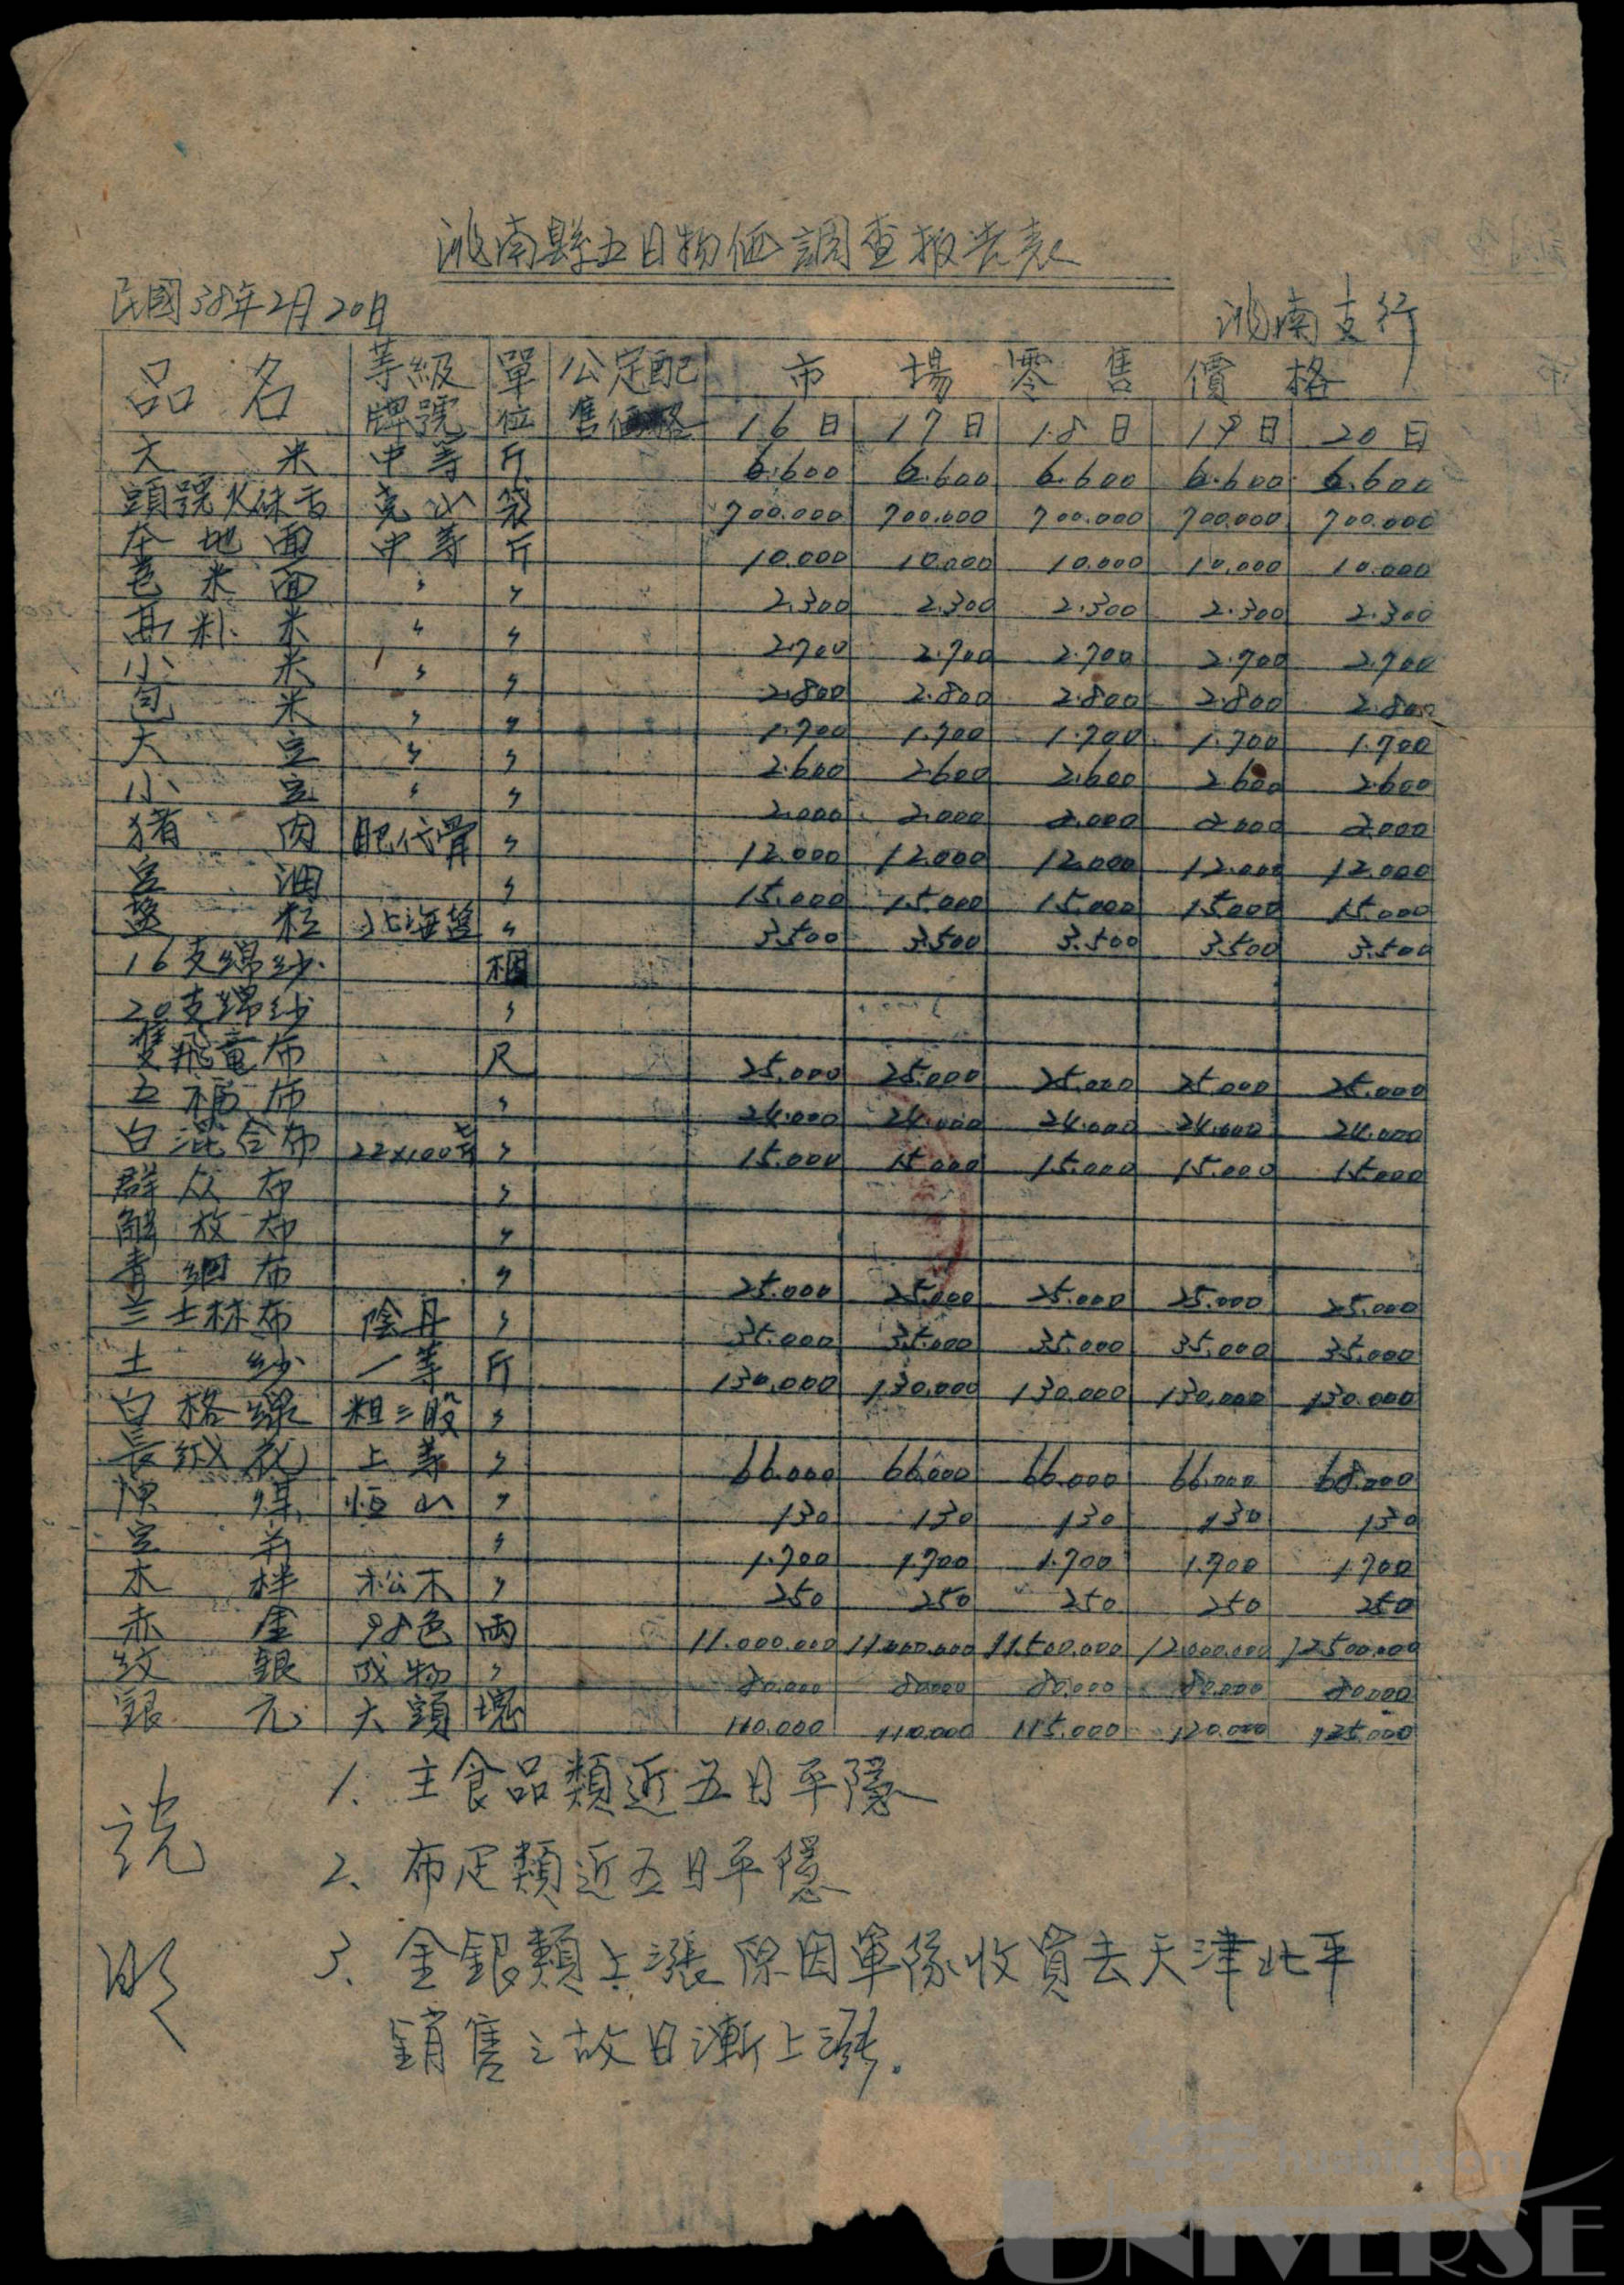 洮南縣五日物価調查报告表
民國38年2月20日 洮南支行
品名 等級牌號 單位 公定配售価格 市場零售價格
16日 17日 18日 19日 20日
大米 中等 斤 6.600 6.600 6.600 6.600 6.600
頭號火 克山 袋 700.000 700.000 700.000 700.000 700.000
本地面 中等 斤 10.000 10.000 10.000 10.000 10.000
苞米面 〃 〃 2.300 2.300 2.300 2.300 2.300
米 〃 〃 2.700 2.700 2.700 2.700 2.700
小米 〃 〃 2.800 2.800 2.800 2.800 2.800
包米 〃 〃 1.700 1.700 1.700 1.700 1.700
大豆 〃 〃 2.600 2.600 2.600 2.600 2.600
小豆 〃 〃 2.000 2.000 2.000 2.000 2.000
猪肉 肥代骨 〃 12.000 12.000 12.000 12.000 12.000
豆油 〃 15.000 15.000 15.000 15.000 15.000
粒 北海 〃 3.500 3.500 3.500 3.500 3.500
16支綿紗 捆
20支綿紗 〃
雙飛竜布 尺 25.000 25.000 25.000 25.000 25.000
五福布 〃 24.000 24.000 24.000 24.000 24.000
白混合布 22x100 〃 15.000 15.000 15.000 15.000 15.000
群众布 〃
解放布 〃
青細布 〃 25.000 25.000 25.000 25.000 25.000
兰士林布 陰丹 〃 35.000 35.000 35.000 35.000 35.000
土紗 一等 斤 130.000 130.000 130.000 130.000 130.000
白格線 粗三股 〃
長絨花 上等 〃 66.000 66.000 66.000 66.000 68.000
煤 恒山 〃 130 130 130 130 130
豆 〃 1.700 1.700 1.700 1.700 1.700
木柈 松木 〃 250 250 250 250 250
赤金 98色 両 11.000.000 11.000.000 11.500.000 12.000.000 12.500.000
紋銀 成物 〃 80.000 80.000 80.000 80.000 80.000
銀元 大頭 塊 110.000 110.000 115.000 120.000 125.000
説明
1. 主食品類近五日平隱
2. 布疋類近五日平隱
3. 金銀類上漲原因軍隊收買去天津北平
銷售之故日漸上漲.
华宇 huabid.com
UNIVERSE